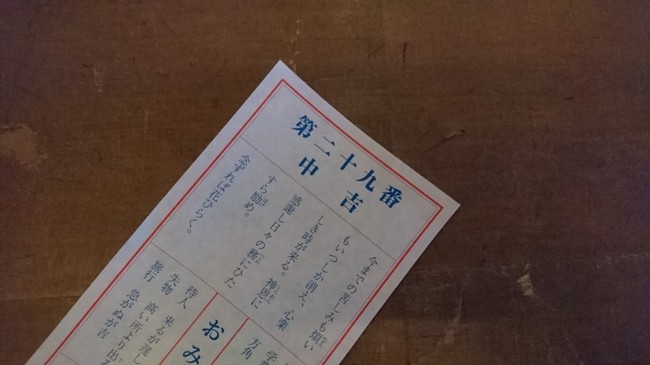 第二十九番
中吉
今までの苦しみも煩い
もいつしか消え、心楽
しき時が来る。神恩に
感謝し日々の務にひた
すら励め。
念ずれば花ひらく。
おみ
方角
待人 来るが遅し
失物 高い所より出る
旅行 急がぬが吉